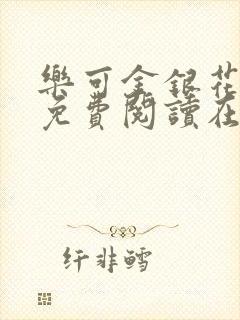 樂可金銀花
免費閱讀在
纤非鳕